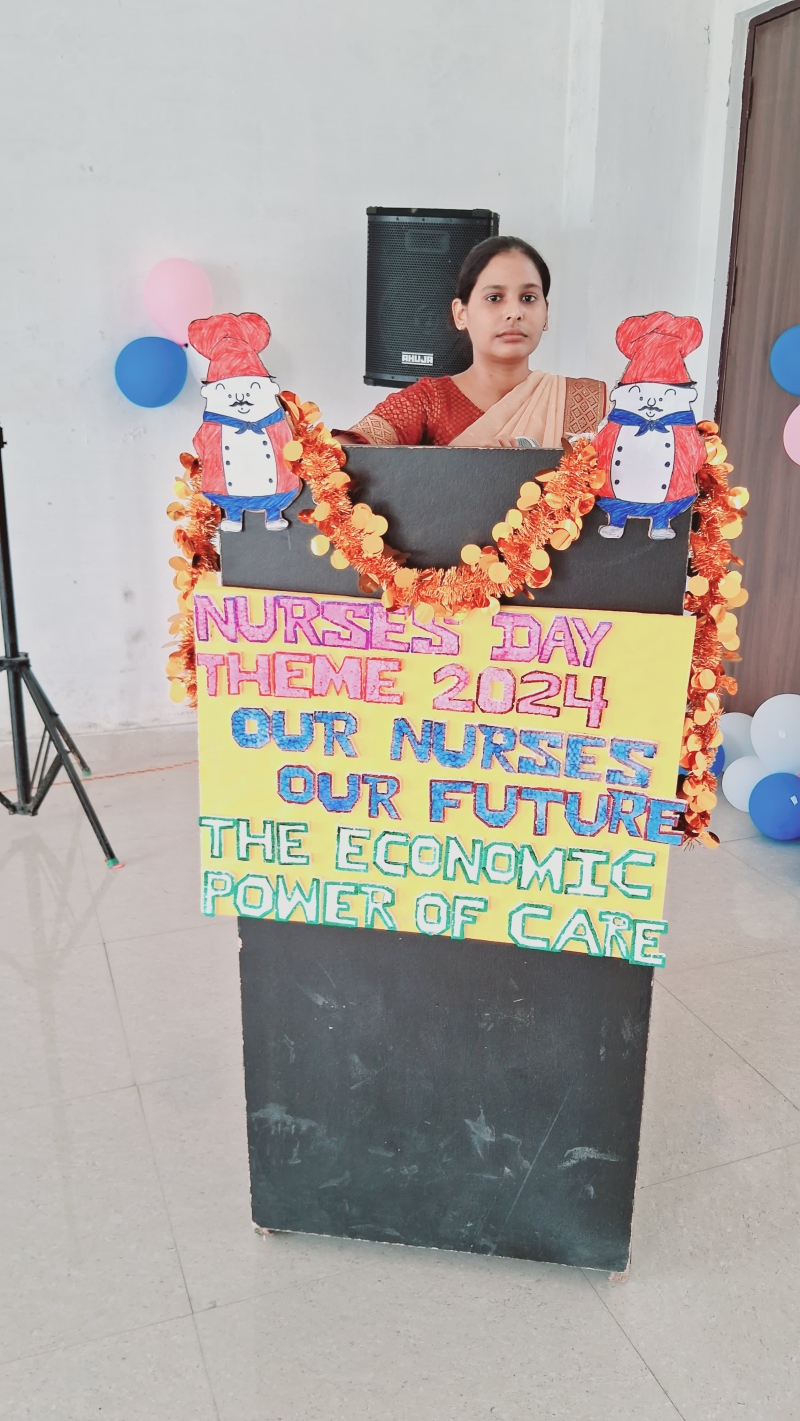 AHUJA
NURSES DAY
THEME 2024
OUR NURSES
OUR FUTURE
THE ECONOMIC
POWER OF CARE